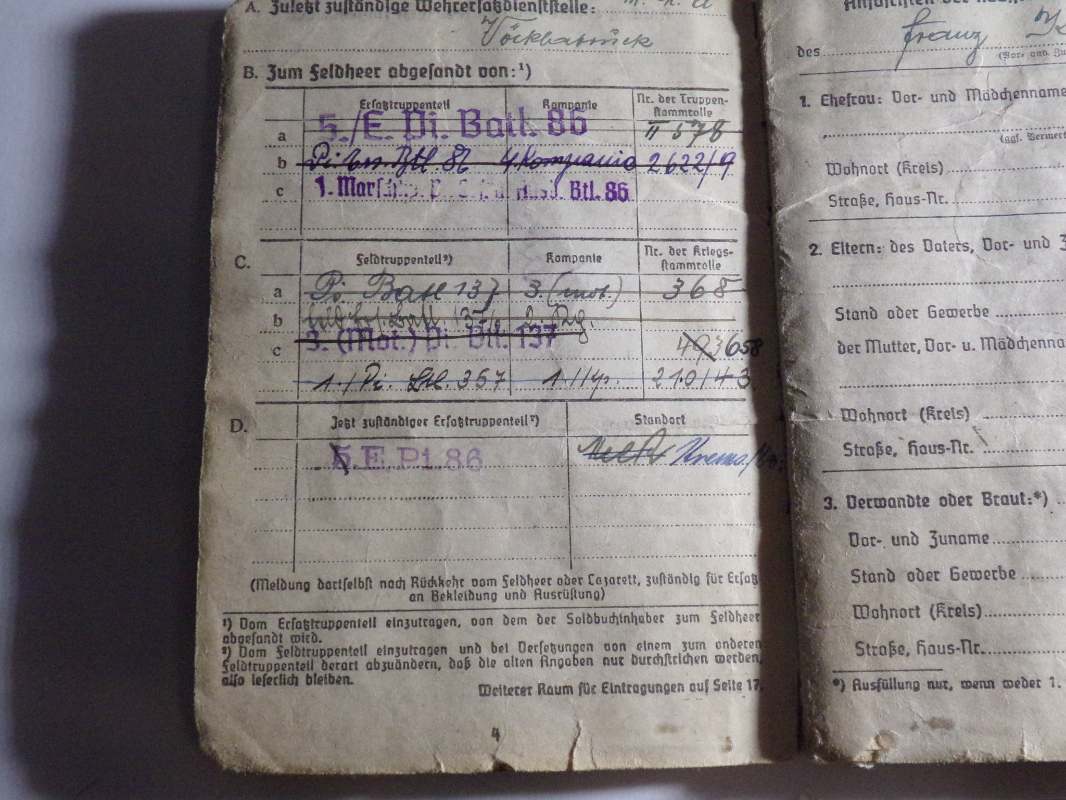 A. Zuletzt zuständige Wehrersatzdienststelle:
Vöcklabruck
B. Zum Feldheer abgesandt von:¹)
Ersatztruppenteil Kompanie Nr. der Truppenstammrolle
a 5./E. Pi. Batl. 86 II 578
b Pi. Ers. Btl. 86 4 Kompanie 2622/9
c 1. Btl. 86
C. Feldtruppenteil²) Kompanie Nr. der Kriegsstammrolle
a Pi. Batl 137 3. (mot.) 368
b
c 3. (Mot.) Pi. Btl. 137 493 658
1./Pi. Btl. 357 210/43
D. Jetzt zuständiger Ersatztruppenteil²) Standort
5. E. Pi. 86 Krems
(Meldung dortselbst nach Rückkehr vom Feldheer oder Lazarett, zuständig für Ersatz
an Bekleidung und Ausrüstung)
¹) Vom Ersatztruppenteil einzutragen, von dem der Soldbuchinhaber zum Feldheer
abgesandt wird.
²) Vom Feldtruppenteil einzutragen und bei Versetzungen von einem zum anderen
Feldtruppenteil derart abzuändern, daß die alten Angaben nur durchstrichen werden,
also leserlich bleiben.
Weiterer Raum für Eintragungen auf Seite 17.
4
Anschriften der
des Franz
1. Ehefrau: Vor- und Mädchenname
(ggf. Vermerk
Wohnort (Kreis)
Straße, Haus-Nr.
2. Eltern: des Vaters, Vor- und
Stand oder Gewerbe
der Mutter, Vor- u. Mädchenna
Wohnort (Kreis)
Straße, Haus-Nr.
3. Verwandte oder Braut:*)
Vor- und Zuname
Stand oder Gewerbe
Wohnort (Kreis)
Straße, Haus-Nr.
*) Ausfüllung nur, wenn weder 1.